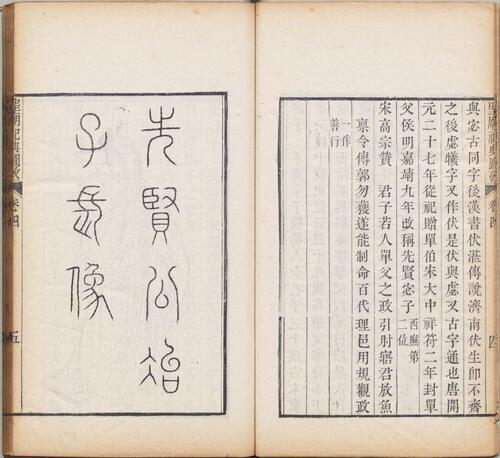 與宓古同字後漢書伏湛傳說濟南伏生卽不齊
之後虙犧字又作伏是伏與虙又古字通也唐開
元二十七年從祀贈單伯宋大中祥符二年封單
父侯明嘉靖九年改稱先賢宓子西廡第二位
宋高宗贊 君子若人單父之政引肘寤君放魚
稟令傳郭勿擭遂能制命百代理邑用規觀政
一作善行
四
先賢公冶
子長像
聖廟祀典圖攷
卷四
五